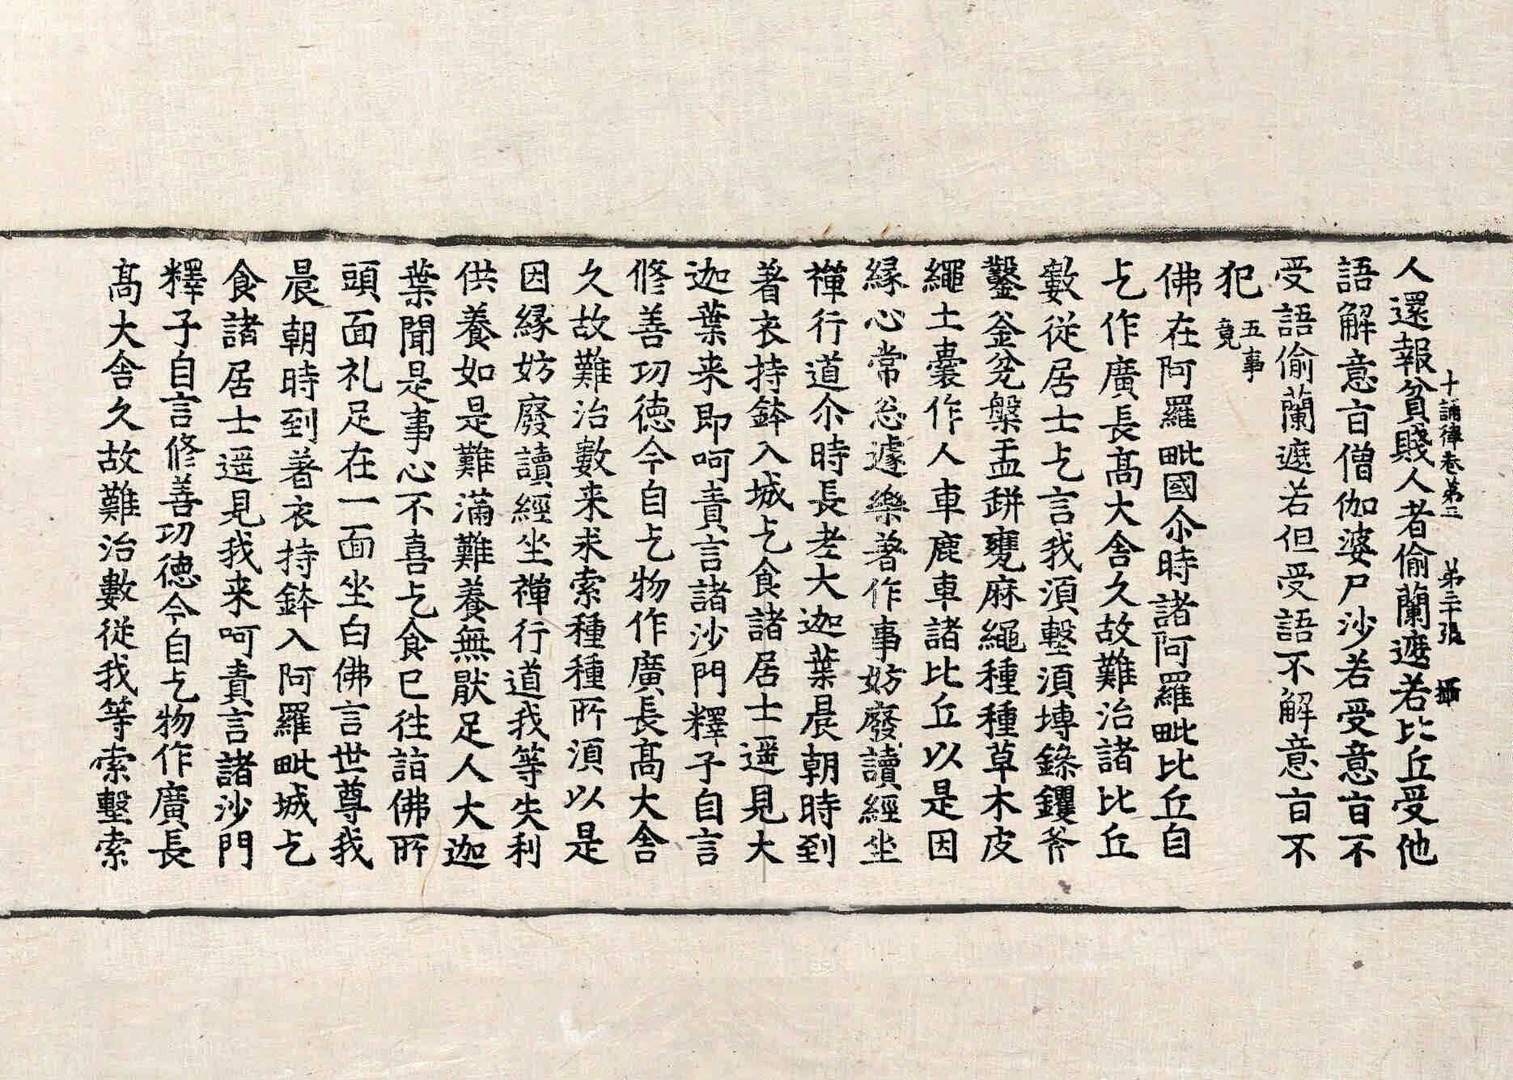 十誦律卷第三 第二十張 攝
人還報貧賤人者偷蘭遮若比丘受他
語解意旨僧伽婆尸沙若受意旨不
受語偷蘭遮若但受語不解意旨不
犯 五事竟
佛在阿羅毗國尒時諸阿羅毗比丘自
乞作廣長高大舍久故難治諸比丘
數從居士乞言我須墼須塼錄钁斧
鑿釜瓫槃盂缾甕麻繩種種草木皮
繩土囊作人車鹿車諸比丘以是因
緣心常怱遽樂著作事妨廢讀經坐
禪行道尒時長老大迦葉晨朝時到
著衣持鉢入城乞食諸居士遥見大
迦葉来即呵責言諸沙門釋子自言
修善功徳今自乞物作廣長高大舍
久故難治數来求索種種所須以是
因緣妨廢讀經坐禪行道我等失利
供養如是難滿難養無猒足人大迦
葉聞是事心不喜乞食已往詣佛所
頭面礼足在一面坐白佛言世尊我
晨朝時到著衣持鉢入阿羅毗城乞
食諸居士遥見我来呵責言諸沙門
釋子自言修善功徳今自乞物作廣長
高大舍久故難治數從我等索墼索